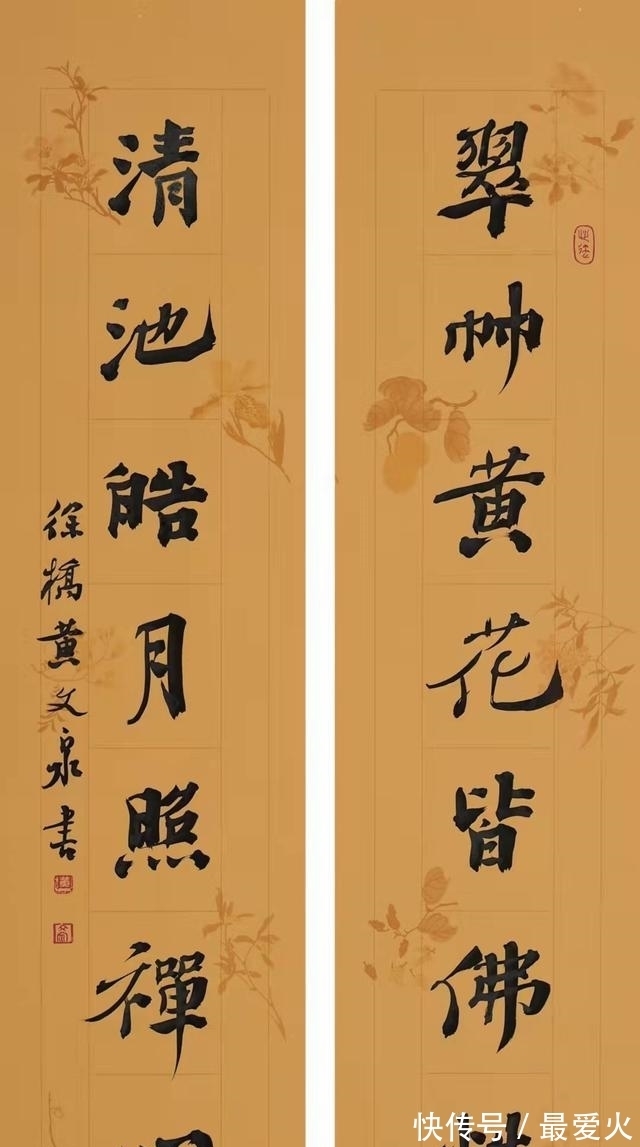 翠艸黄花皆佛
清池皓月照禪
徐橋黄文泉書
快传号 / 最爱火